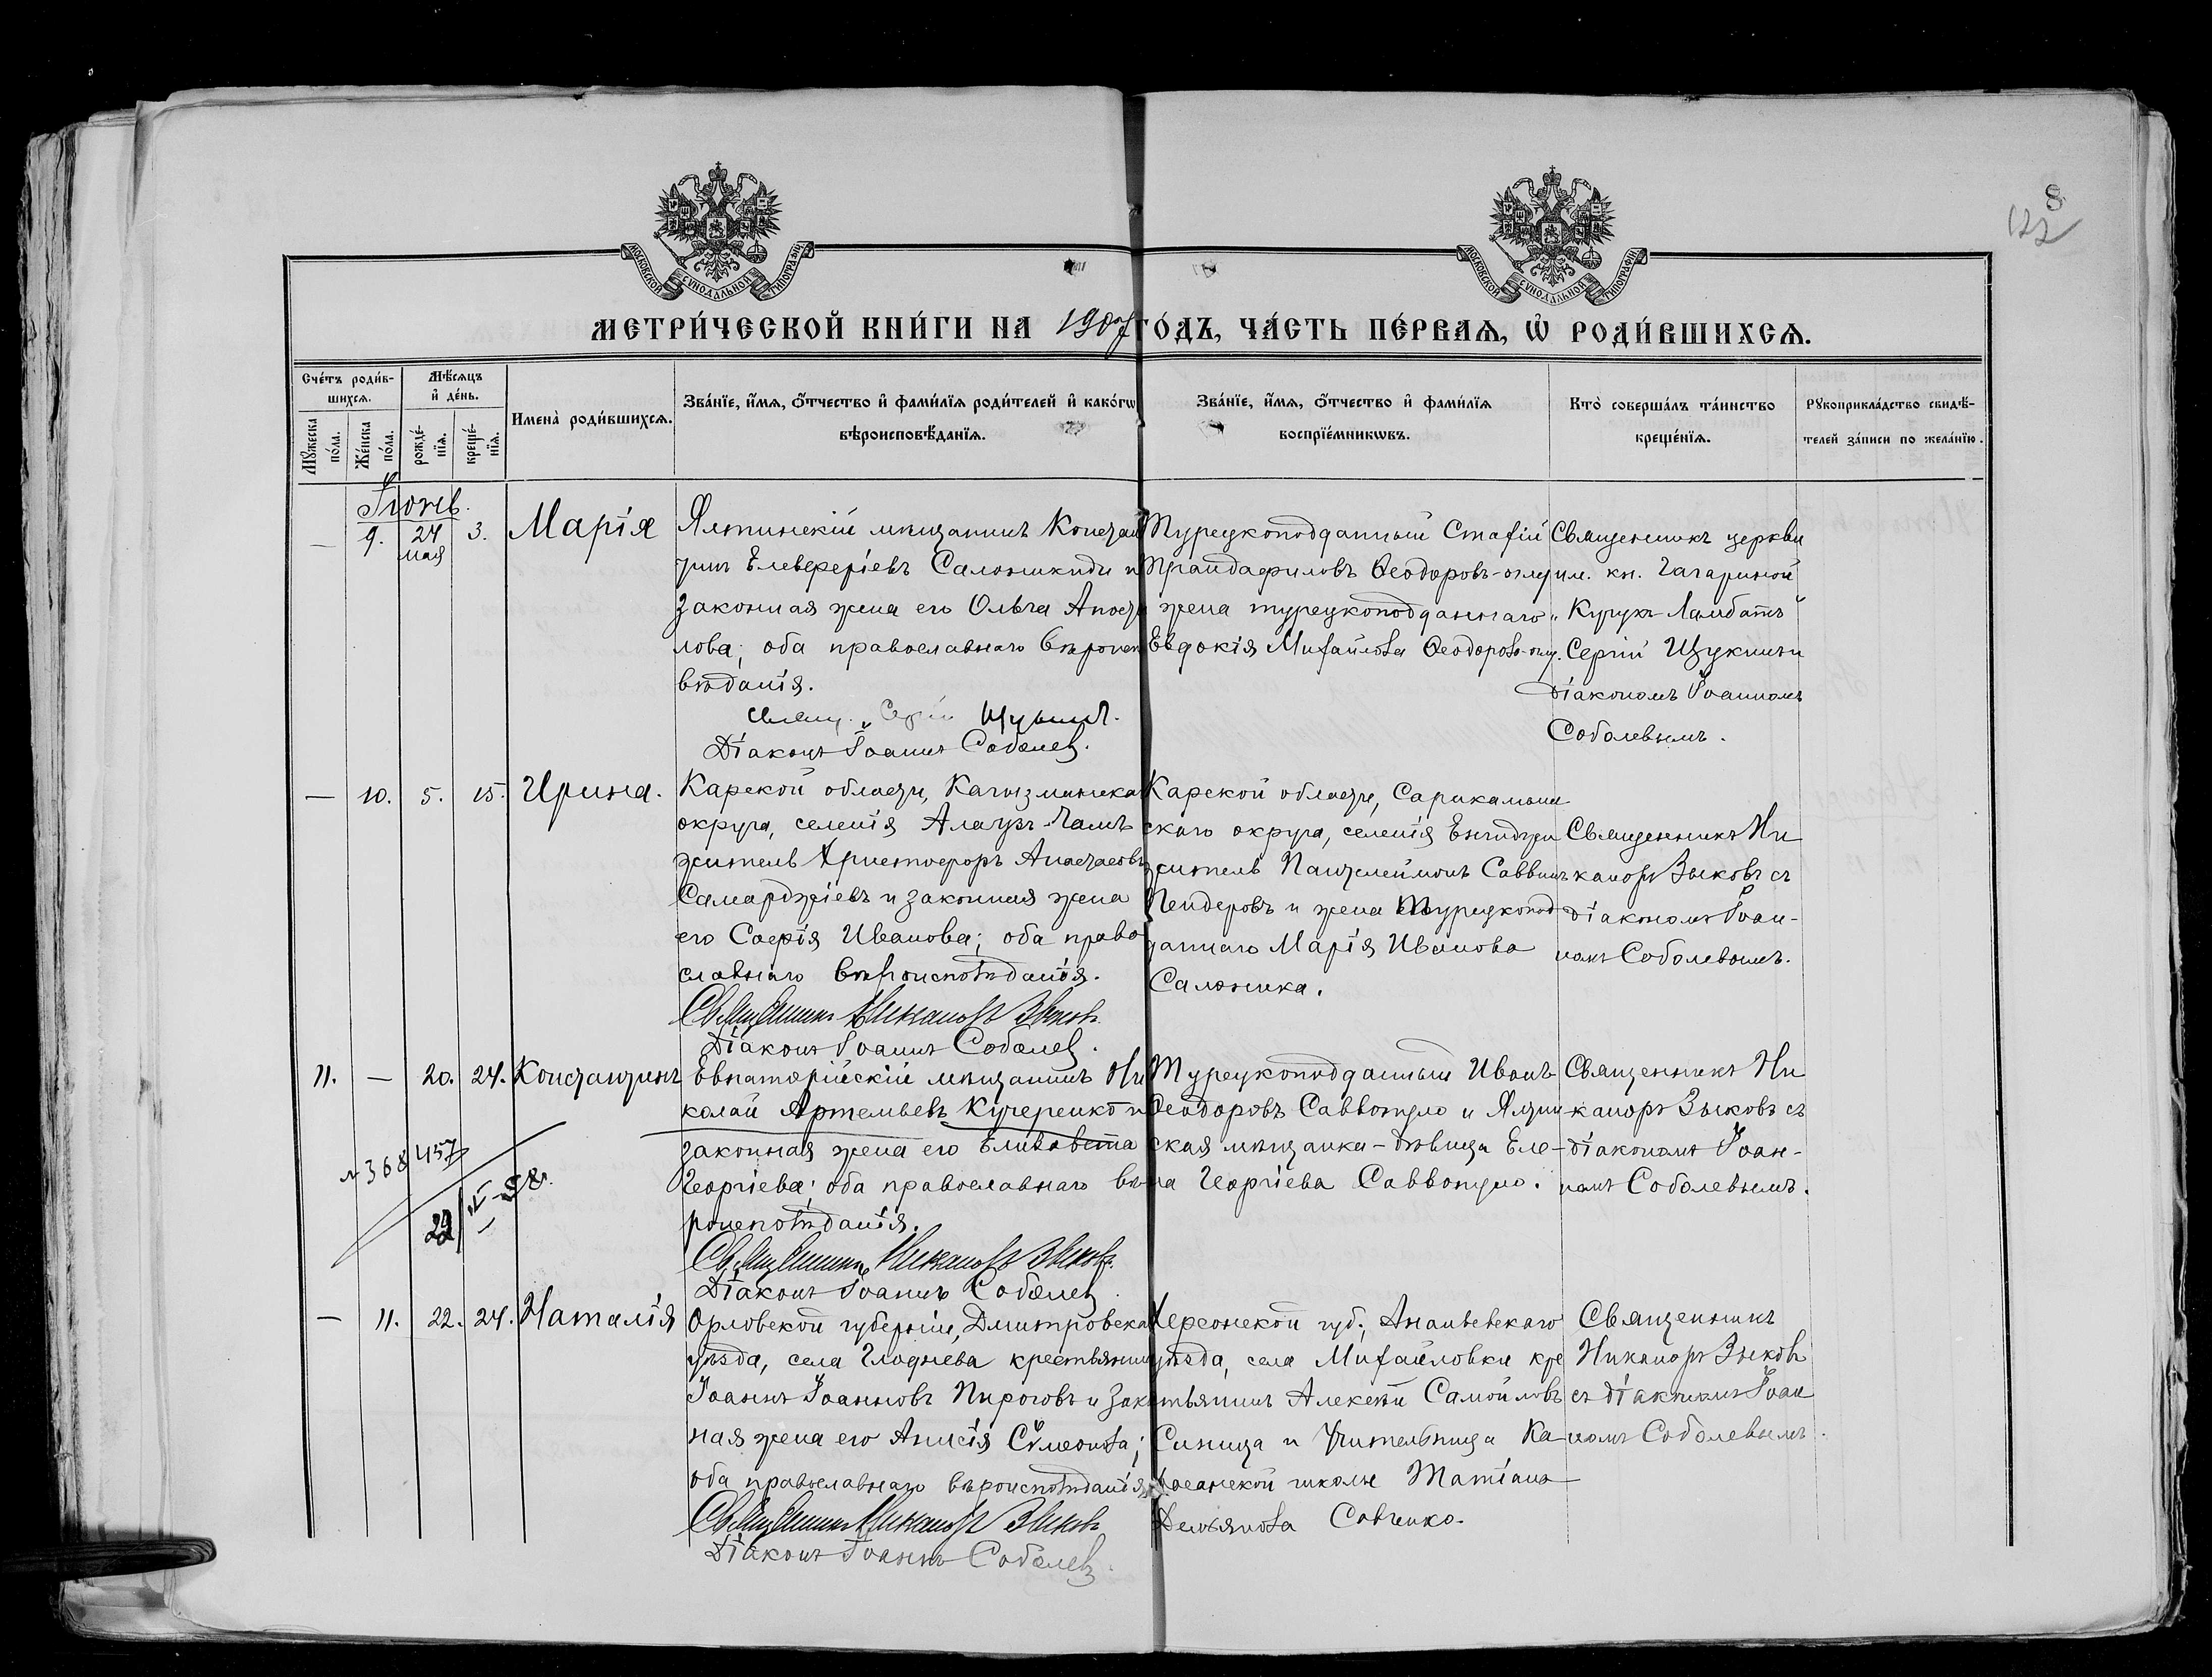 8
122
МОСКОВСКОЙ СѴНОДАЛЬНОЙ ТИПОГРАФІИ
МОСКОВСКОЙ СѴНОДАЛЬНОЙ ТИПОГРАФІИ
МЕТРИ́ЧЕСКОЙ КНИ́ГИ НА 1907 ГО́ДЪ, ЧА́СТЬ ПЕ́РВАѦ, Ѡ҆ РОДИ́ВШИХСѦ.
Сче́тъ роди́в-
шихсѧ.
Мꙋ́жеска по́ла.
Же́нска по́ла.
Мѣ́сѧцъ
и҆ де́нь.
рожде́-
нїѧ.
креще́-
нїѧ.
Имена̀ роди́вшихсѧ.
Зва́нїе, и҆́мѧ, о҆́тчество и҆ фами́лїѧ роди́телей и҆ како́гѡ
вѣроисповѣ́данїѧ.
Зва́нїе, и҆́мѧ, о҆́тчество и҆ фами́лїѧ
воспрїе́мникѡвъ.
Кто̀ соверша́лъ та́инство
креще́нїѧ.
Рꙋкоприкла́дство свидѣ́-
телей за́писи по жела́нїю.
Іюнь.
— 9. 24 мая 3. Марія
Ялтинскій мѣщанинъ Констан
тинъ Елевферіевъ Салоникиди и
законная жена его Ольга Апосто
лова; оба православнаго вѣроис
вѣданія.
Свящ. Сергій Щукинъ.
Діаконъ Іоаннъ Соболев.
Турецкоподданный Стафій
Трандафиловъ Ѳеодоровъ-оглу и
жена турецкоподданнаго
Евдокія Михайлова Ѳеодорова-оглу.
Священникъ церкви
им. кн. Гагариной
„Кучукъ Ламбатъ“
Сергій Щукинъ и
діакономъ Іоанномъ
Соболевымъ.
— 10. 5. 15. Ирина.
Карской области, Кагызманска
округа, селенія Алачукъ-Чамъ
житель Христофоръ Анастасовъ
Самарджіевъ и законная жена
его Софія Иванова; оба право
славнаго вѣроисповѣданія.
Священникъ Никаноръ Зыковъ.
Діаконъ Іоаннъ Соболев.
Карской области, Сарикамыш
скаго округа, селенія
житель Пантелеймонъ Саввинъ
Пендеровъ и жена турецкопод
даннаго Марія Иванова
Салоника.
Священникъ Ни
каноръ Зыковъ съ
діакономъ Іоан-
номъ Соболевымъ.
11. — 20. 24. Константинъ
№ 368 457
Евпаторійскій мѣщанинъ Ни
колай Артемьевъ Кучеренко и
законная жена его Елисавета
Георгіева; оба православнаго вѣ-
роисповѣданія.
Священникъ Никаноръ Зыковъ.
Діаконъ Іоаннъ Соболев
Турецкоподданный Иванъ
Ѳеодоровъ Саввопуло и Ялтин
ская мѣщанка-дѣвица Еле-
на Георгіева Саввопуло.
Священникъ Ни
каноръ Зыковъ съ
діакономъ Іоан-
номъ Соболевымъ.
— 11. 22. 24. Наталія
Орловской губерніи, Дмитровска
уѣзда, села Глоднева крестьянинъ
Іоаннъ Іоанновъ Пироговъ и закон
ная жена его Анисія Сѵмеонова;
оба православнаго вѣроисповѣданія.
Священникъ Никаноръ Зыковъ
Діаконъ Іоаннъ Соболев.
Херсонской губ., Ананьевскаго
уѣзда, села Михайловки кре
стьянинъ Алексѣй Самойловъ
Синица и Учительница Ка
школы Татіана
Демьянова Савченко.
Священникъ
Никаноръ Зыковъ
съ діакономъ Іоан
номъ Соболевымъ.